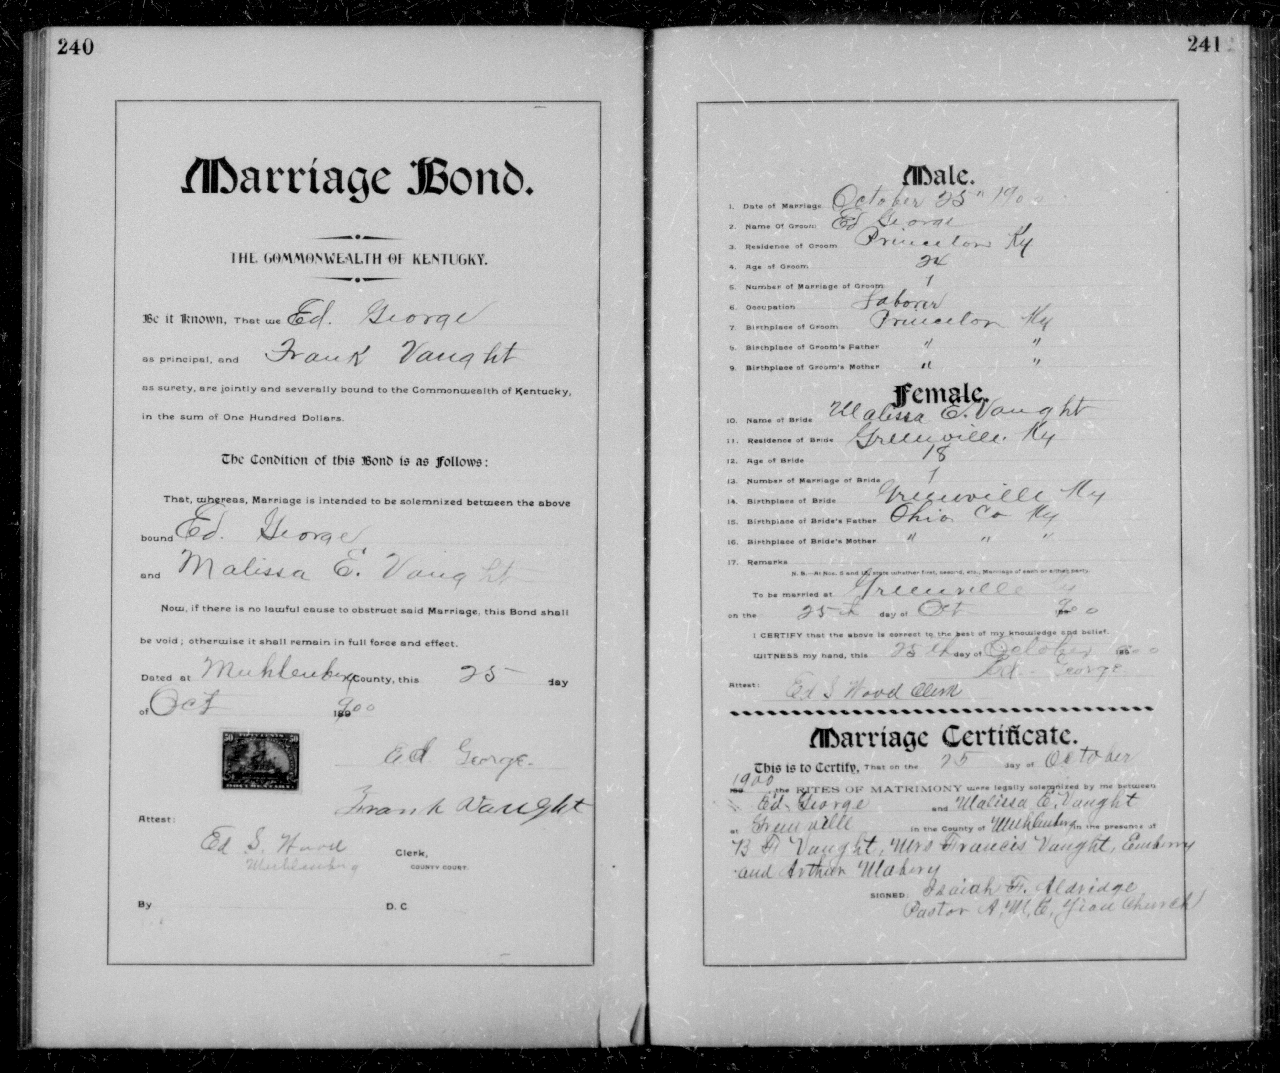 240
Marriage Bond.
THE COMMONWEALTH OF KENTUCKY.
Be it Known, That we Ed. George
as principal, and Frank Vaught
as surety, are jointly and severally bound to the Commonwealth of Kentucky,
in the sum of One Hundred Dollars.
The Condition of this Bond is as Follows:
That, whereas, Marriage is intended to be solemnized between the above
bound Ed. George
and Malissa E. Vaught
Now, if there is no lawful cause to obstruct said Marriage, this Bond shall
be void; otherwise it shall remain in full force and effect.
Dated at Muhlenberg County, this 25 day
of Oct 1900
50 50
Ed George.
Frank Vaught
Attest:
Ed. S. Wood
Clerk,
Muhlenberg COUNTY COURT.
By D. C.
241
Male.
1. Date of Marriage October 25" 1900
2. Name Of Groom Ed George
3. Residence of Groom Princeton Ky
4. Age of Groom 24
5. Number of Marriage of Groom 1
6. Occupation Laborer
7. Birthplace of Groom Princeton Ky
8. Birthplace of Groom's Father " "
9. Birthplace of Groom's Mother " "
Female.
10. Name of Bride Malissa E. Vaught
11. Residence of Bride Greenville. Ky
12. Age of Bride 18
13. Number of Marriage of Bride 1
14. Birthplace of Bride Greenville Ky
15. Birthplace of Bride's Father Ohio Co Ky
16. Birthplace of Bride's Mother " " "
17. Remarks
N. B.—At Nos. 5 and 13, state whether first, second, etc., Marriage of each or either party.
To be married at Greenville
on the 25th day of Oct 1900
I CERTIFY that the above is correct to the best of my knowledge and belief.
WITNESS my hand, this 25th day of October 1900
Ed. George
Attest: Ed S Wood Clerk
Marriage Certificate.
This is to Certify, That on the 25 day of October
1900 the RITES OF MATRIMONY were legally solemnized by me between
Ed. George and Malissa E. Vaught
at Greenville in the County of Muhlenberg in the presents of
B F Vaught, Mrs Francis Vaught, Emberry
and Arthur Mabery
SIGNED: Isaiah F. Aldridge
Pastor A. M. E. Zion Church